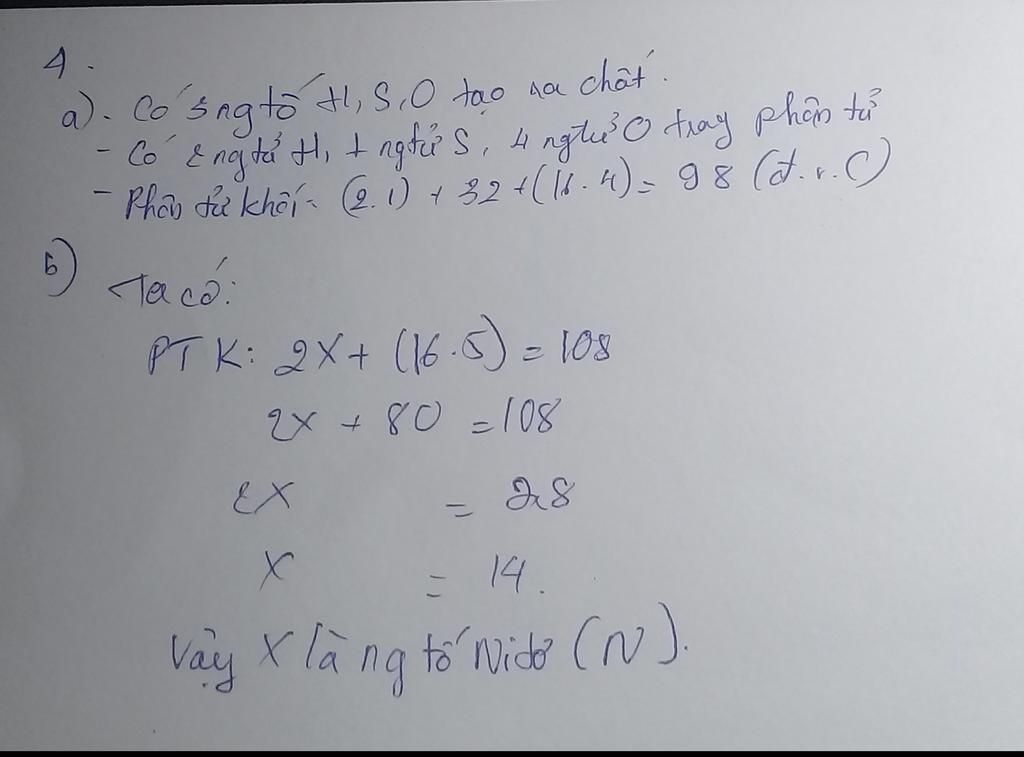 4.
a). Có 3 ng tố H, S, O tạo ra chất.
- Có 2 ng tử H, 1 ng tử S, 4 ng tử O trog phân tử
- Phân tử khối = (2.1) + 32 + (16.4) = 98 (đ.v.C)
b) Ta có:
PTK: 2X + (16.5) = 108
2X + 80 = 108
2X = 28
X = 14.
Vậy X là ng tố Nitơ (N).